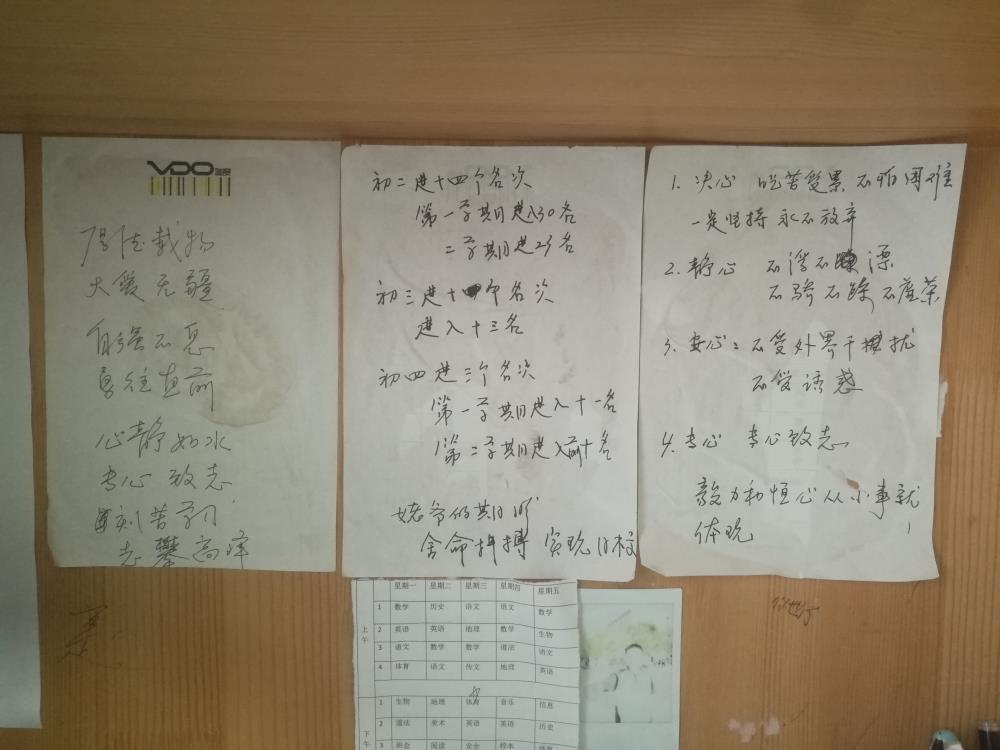 VDO
厚德载物
大爱无疆
自强不息
勇往直前
心静如水
专心致志
刻苦学习
志攀高峰
初二进十四个名次
第一学期进入30名
二学期进25名
初三进十四个名次
进入十三名
初四进三个名次
第一学期进入十一名
第二学期进入前十名
姥爷的期盼
舍命拼搏 实现目标
1. 决心 吃苦受累 不怕困难
一定坚持 永不放弃
2. 静心 不浮不漂
不骄不躁 不虚荣
3. 安心: 不受外界干扰
不受诱惑
4. 专心 专心致志
毅力和恒心从小事就
体现
星期一 星期二 星期三 星期四 星期五
上午
1 数学 历史 语文 语文 数学
2 英语 英语 地理 数学 生物
3 语文 数学 数学 道法 语文
4 体育 语文 传文 地理 英语
下午
1 生物 地理 体育 音乐 信息
2 道法 美术 英语 英语 历史
3 班会 阅读 安全 校本 体育